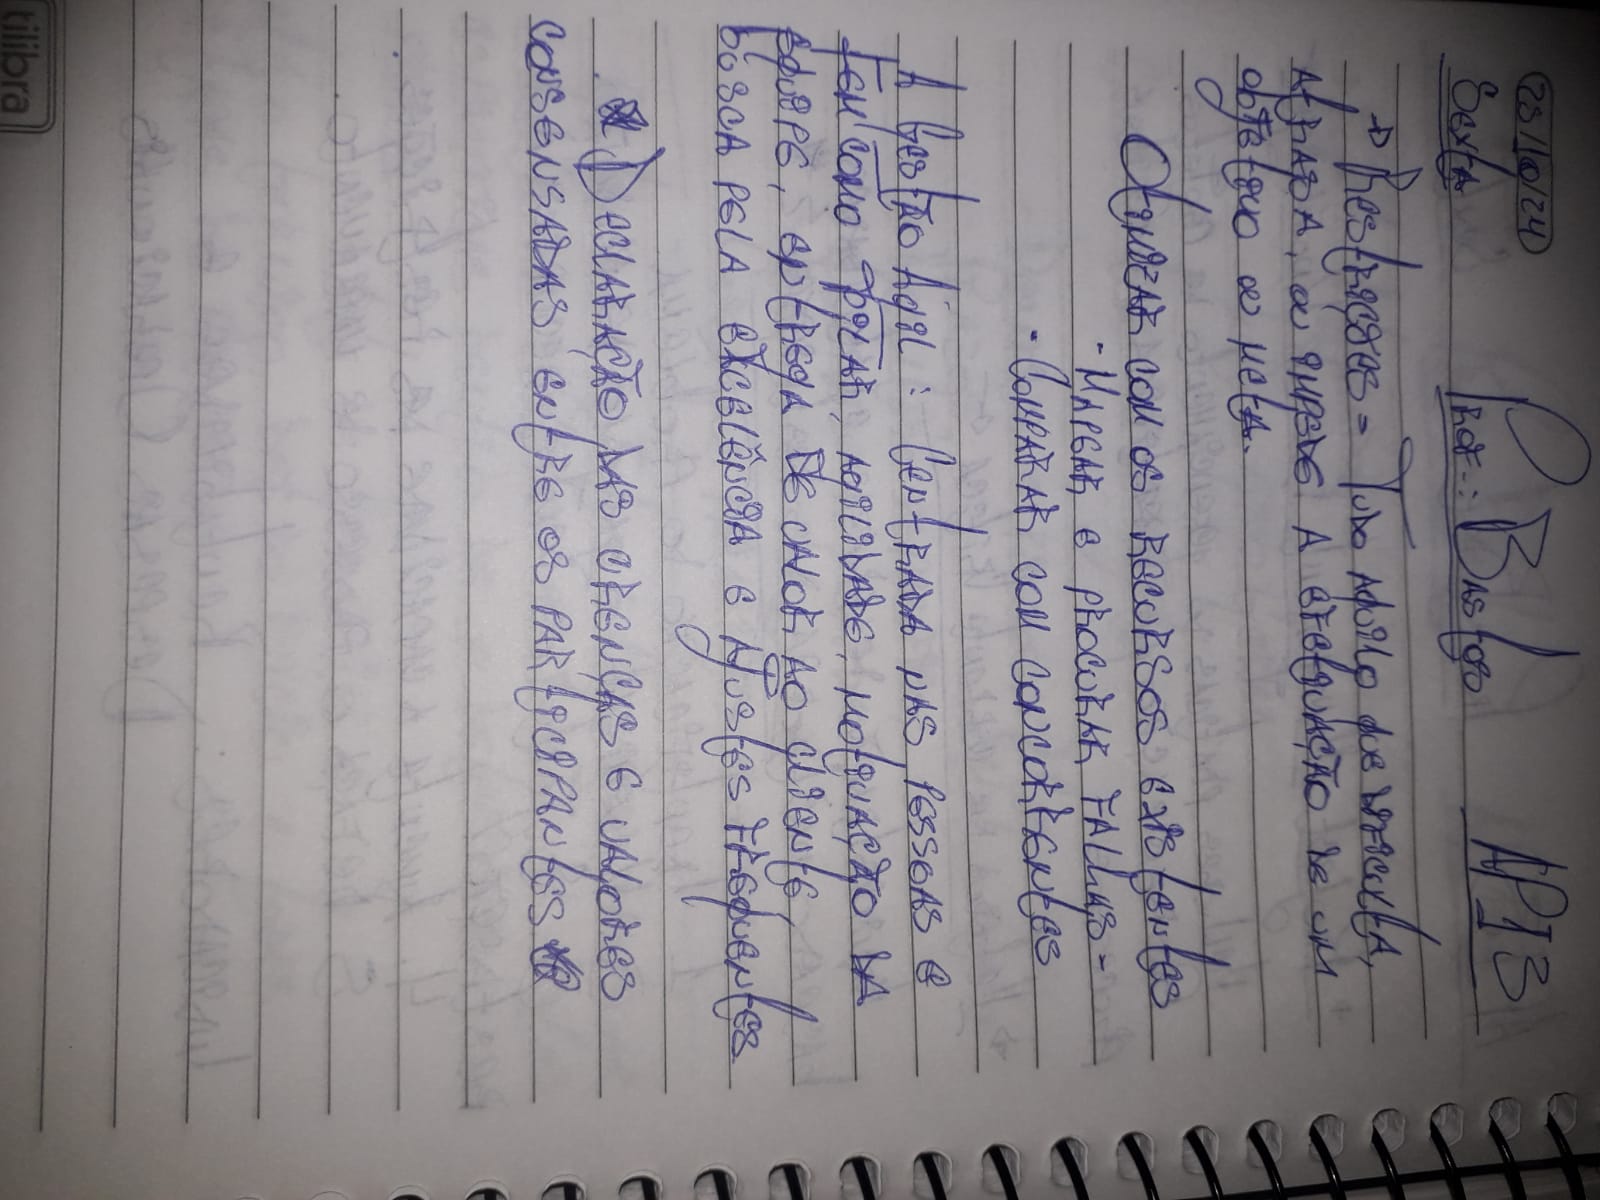 25/10/24
Sexta
Prof.: Bastos
API 3
→ Restrições = Tudo aquilo que dificulta,
atrasa, ou impede a efetivação de um
objetivo ou meta.
Otimizar com os recursos existentes
- Mapear e procurar falhas -
- Comparar com concorrentes
A Gestão Ágil: Centrada nas pessoas e
tem como pilar, agilidade, motivação da
equipe, entrega de valor ao cliente,
busca pela excelência e ajustes frequentes
Declaração das crenças e valores
consensadas entre os participantes
tilibra